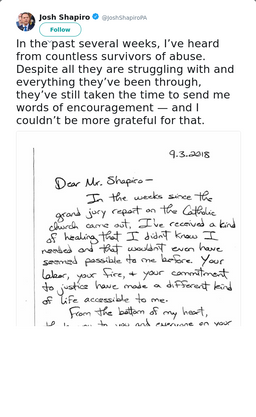 Josh Shapiro @JoshShapiroPA
Follow
In the past several weeks, I've heard
from countless survivors of abuse.
Despite all they are struggling with and
everything they've been through,
they've still taken the time to send me
words of encouragement — and I
couldn't be more grateful for that.
9.3.2018
Dear Mr. Shapiro –
In the weeks since the
grand jury report on the Catholic
church came out, I've received a kind
of healing that I didn't know I
needed and that wouldn't even have
seemed possible to me before. Your
labor, your fire, & your commitment
to justice have made a different kind
of life accessible to me.
From the bottom of my heart,
to you and everyone on your